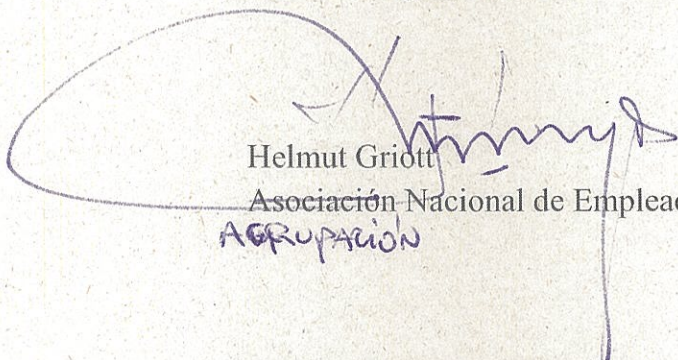 Helmut Griott
Asociación Nacional de Emplead
AGRUPACIÓN